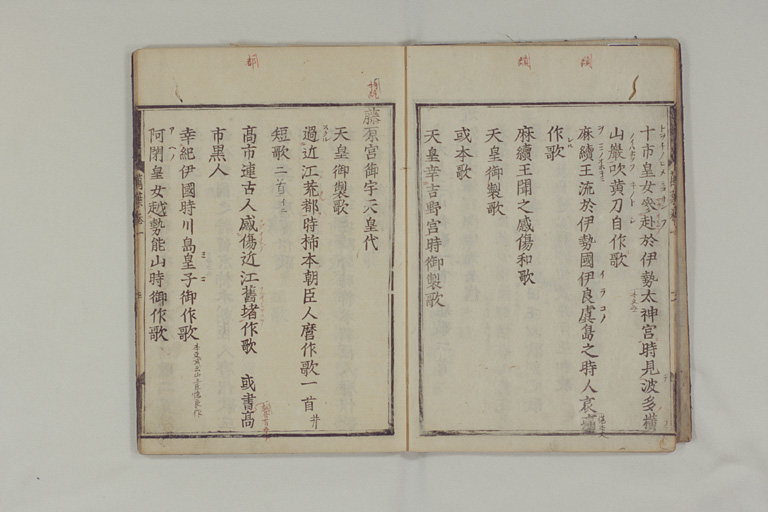 十市皇女參赴於伊勢太神宮時見波多横
山巖吹黄刀自作歌
麻續王流於伊勢國伊良虞島之時人哀傷
作歌
麻續王聞之感傷和歌
天皇御製歌
或本歌
天皇幸吉野宮時御製歌
藤原宮御宇天皇代
天皇御製歌
過近江荒都時柿本朝臣人麿作歌一首 并
短歌 二首イニ
高市連古人感傷近江舊堵作歌 或書高
市黒人
幸紀伊國時川島皇子御作歌
阿閇皇女越勢能山時御作歌